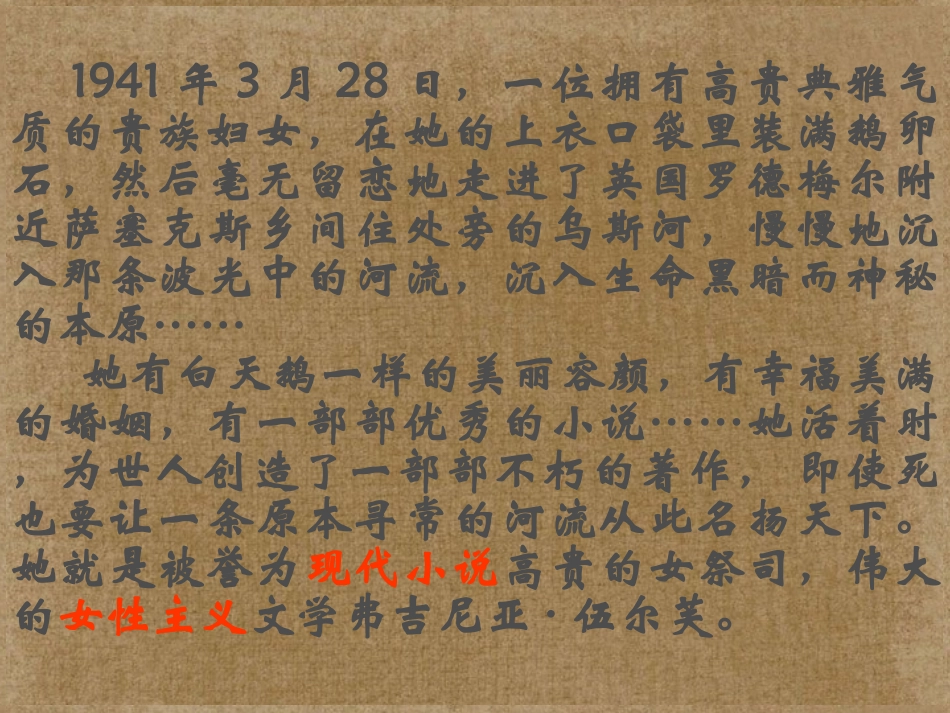 1941 年 3 月 28 日，一位拥有高贵典雅气
质的贵族妇女，在她的上衣口袋里装满鹅卵
石，然后毫无留恋地走进了英国罗德梅尔附
近萨塞克斯乡间住处旁的乌斯河，慢慢地沉
入那条波光中的河流，沉入生命黑暗而神秘
的本原……
她有白天鹅一样的美丽容颜，有幸福美满
的婚姻，有一部部优秀的小说……她活着时
，为世人创造了一部部不朽的著作， 即使死
也要让一条原本寻常的河流从此名扬天下。
她就是被誉为现代小说高贵的女祭司，伟大
的女性主义文学弗吉尼亚·伍尔芙。